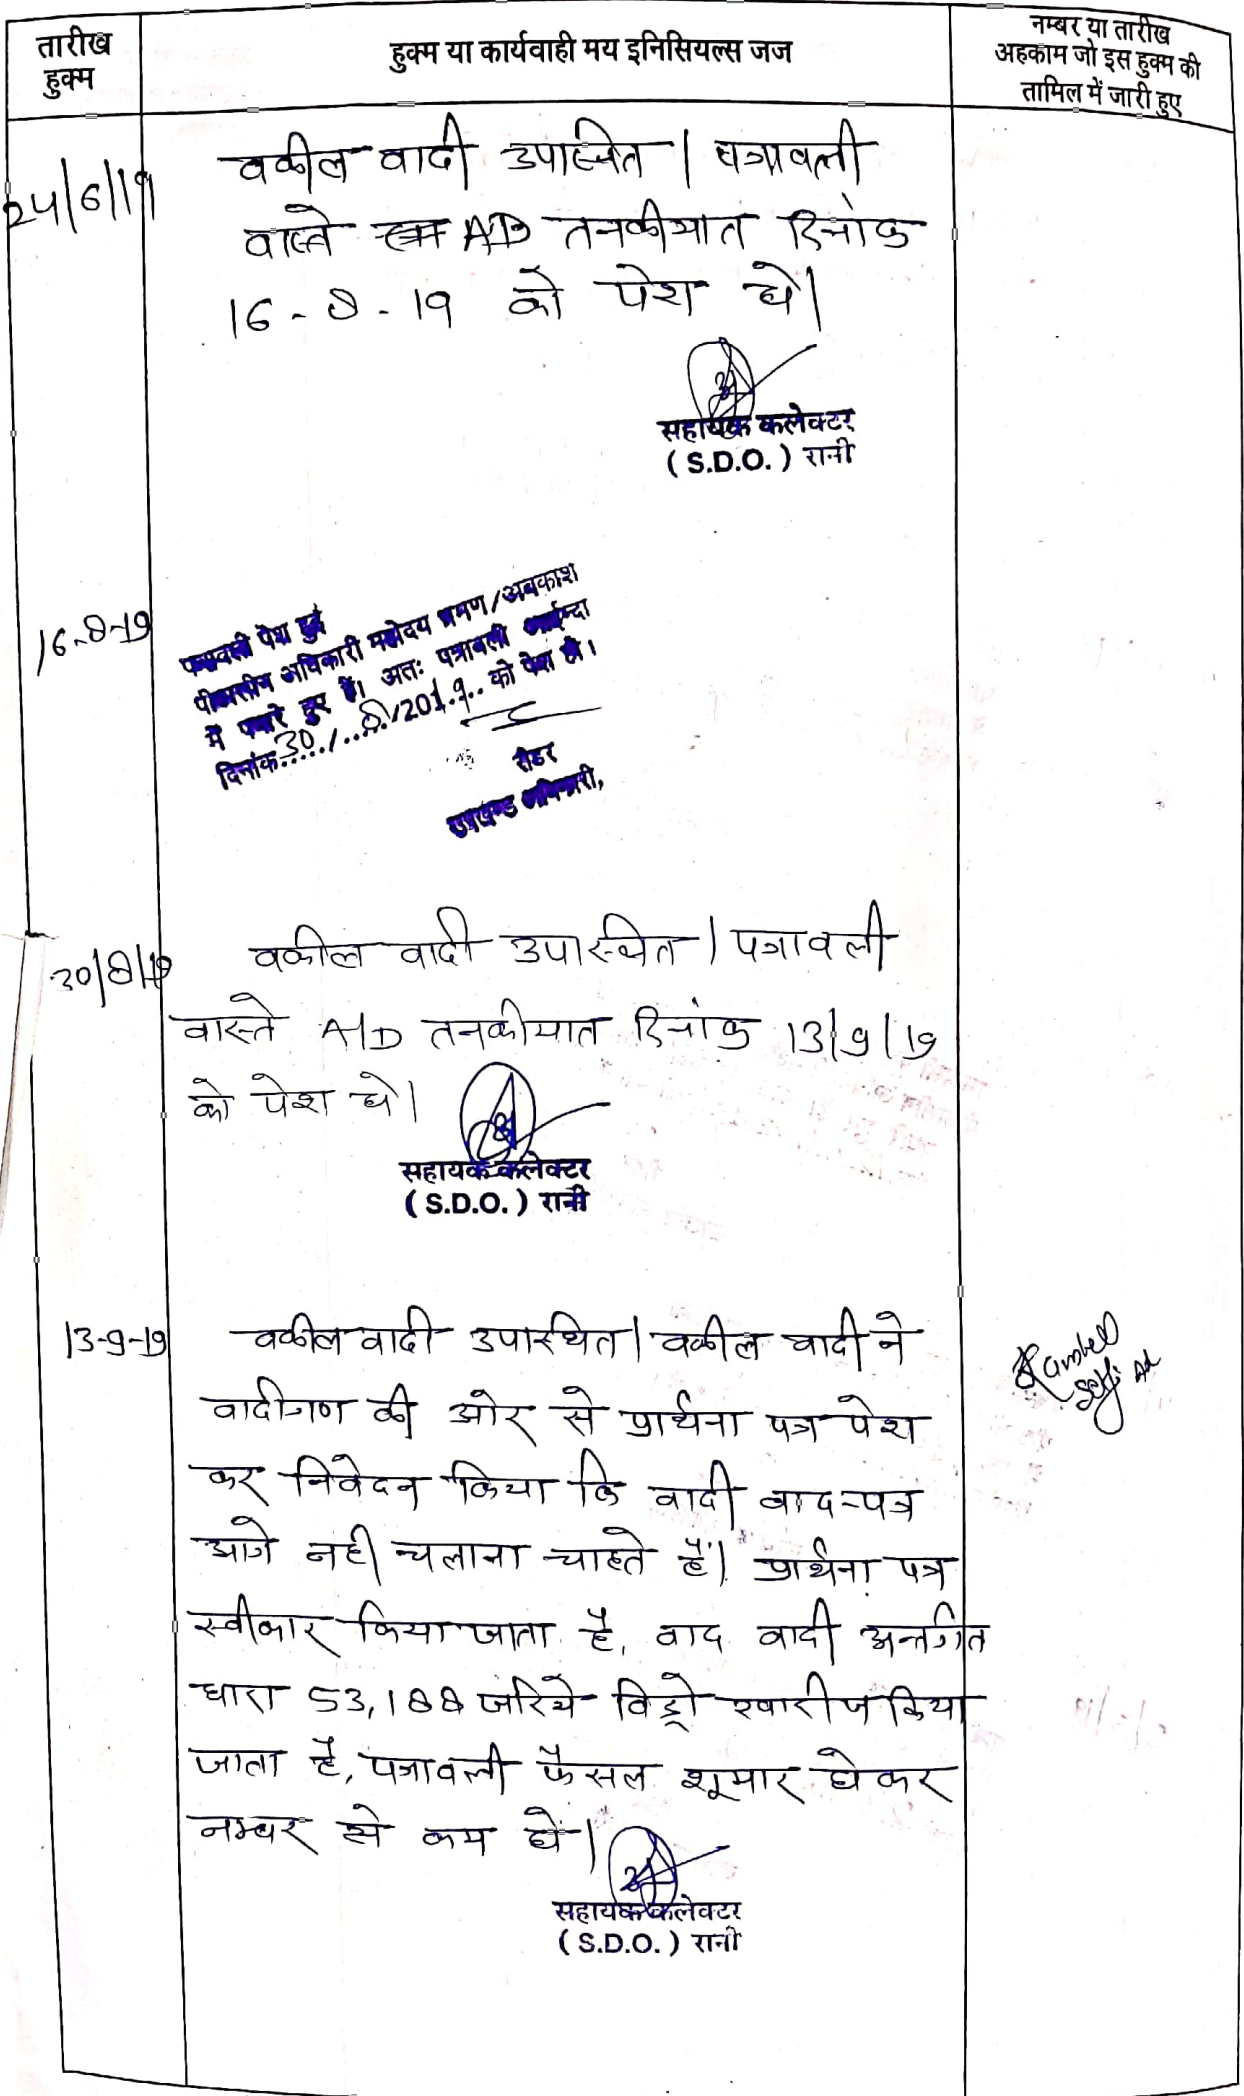 तारीख
हुक्म
हुक्म या कार्यवाही मय इनिसियल्स जज
नम्बर या तारीख
अहकाम जो इस हुक्म की
तामिल में जारी हुए
24/6/19
वकील वादी उपस्थित। पत्रावली
वास्ते AD तनकीयात दिनांक
16-8-19 को पेश हो।
सहायक कलेक्टर
(S.D.O.) रानी
16-8-19
पत्रावली पेश हुई
पीठासीन अधिकारी महोदय भ्रमण/अवकाश
में पधारे हुए हैं। अतः पत्रावली आईन्दा
दिनांक 30/8/2019 को पेश हो।
रीडर
उपखण्ड अधिकारी,
30/8/19
वकील वादी उपस्थित। पत्रावली
वास्ते A/D तनकीयात दिनांक 13/9/19
को पेश हो।
सहायक कलेक्टर
(S.D.O.) रानी
13-9-19
वकील वादी उपस्थित। वकील वादी ने
वादीगण की ओर से प्रार्थना पत्र पेश
कर निवेदन किया कि वादी वाद-पत्र
आगे नही चलाना चाहते हैं। प्रार्थना पत्र
स्वीकार किया जाता है, वाद वादी अन्तर्गत
धारा 53,188 जरिये विड्रो खारीज किया
जाता है, पत्रावली फैसल शूमार होकर
नम्बर से कम हो।
सहायक कलेक्टर
(S.D.O.) रानी